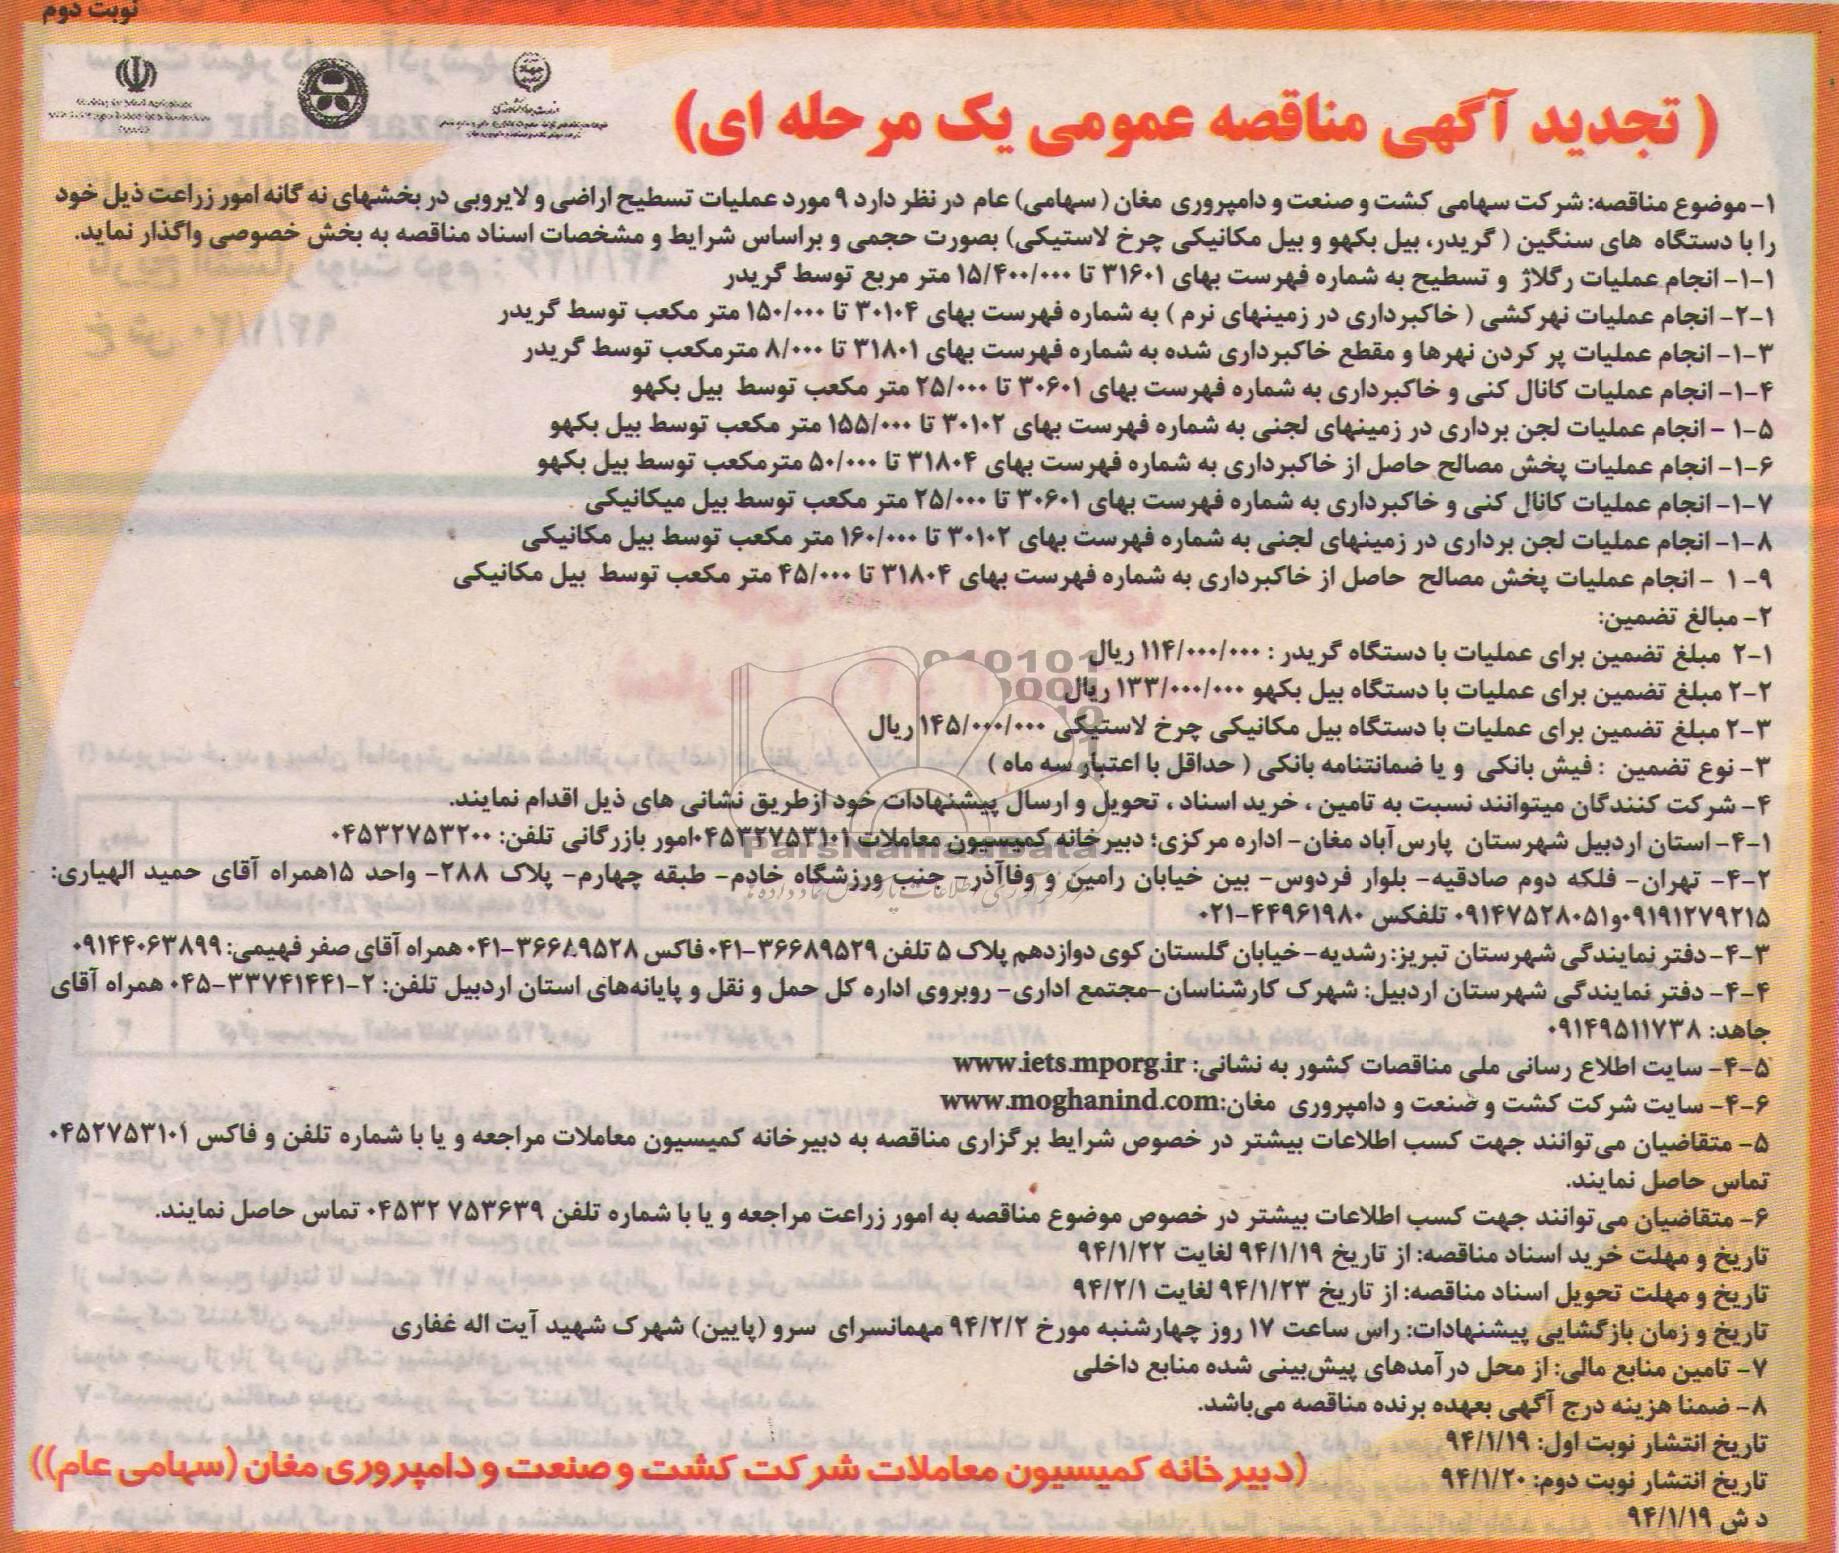 نوبت دوم
( تجدید آگهی مناقصه عمومی یک مرحله ای)
۱- موضوع مناقصه: شرکت سهامی کشت و صنعت و دامپروری مغان ( سهامی) عام در نظر دارد ۹ مورد عملیات تسطیح اراضی و لایروبی در بخشهای نه گانه امور زراعت ذیل خود
را با دستگاه های سنگین ( گریدر، بیل بکهو و بیل مکانیکی چرخ لاستیکی) بصورت حجمی و براساس شرایط و مشخصات اسناد مناقصه به بخش خصوصی واگذار نماید.
۱-۱- انجام عملیات رگلاژ و تسطیح به شماره فهرست بهای ۳۱۶۰۱ تا ۱۵/۴۰۰/۰۰۰ متر مربع توسط گریدر
۲-۱- انجام عملیات نهرکشی ( خاکبرداری در زمینهای نرم ) به شماره فهرست بهای ۳۰۱۰۴ تا ۱۵۰/۰۰۰ متر مکعب توسط گریدر
۱-۳- انجام عملیات پر کردن نهرها و مقطع خاکبرداری شده به شماره فهرست بهای ۳۱۸۰۱ تا ۸/۰۰۰ مترمکعب توسط گریدر
۱-۴- انجام عملیات کانال کنی و خاکبرداری به شماره فهرست بهای ۳۰۶۰۱ تا ۲۵/۰۰۰ متر مکعب توسط بیل بکهو
۱-۵ - انجام عملیات لجن برداری در زمینهای لجنی به شماره فهرست بهای ۳۰۱۰۲ تا ۱۵۵/۰۰۰ متر مکعب توسط بیل بکهو
۱-۶- انجام عملیات پخش مصالح حاصل از خاکبرداری به شماره فهرست بهای ۳۱۸۰۴ تا ۵۰/۰۰۰ مترمکعب توسط بیل بکهو
۱-۷- انجام عملیات کانال کنی و خاکبرداری به شماره فهرست بهای ۳۰۶۰۱ تا ۲۵/۰۰۰ متر مکعب توسط بیل میکانیکی
۱-۸- انجام عملیات لجن برداری در زمینهای لجنی به شماره فهرست بهای ۳۰۱۰۲ تا ۱۶۰/۰۰۰ متر مکعب توسط بیل مکانیکی
۹- ۱ - انجام عملیات پخش مصالح حاصل از خاکبرداری به شماره فهرست بهای ۳۱۸۰۴ تا ۴۵/۰۰۰ متر مکعب توسط بیل مکانیکی
۲- مبالغ تضمین:
۲-۱ مبلغ تضمین برای عملیات با دستگاه گریدر : ۱۱۴/۰۰۰/۰۰۰ ریال
۲-۲ مبلغ تضمین برای عملیات با دستگاه بیل بکهو ۱۳۳/۰۰۰/۰۰۰ ریال
۲-۳ مبلغ تضمین برای عملیات با دستگاه بیل مکانیکی چرخ لاستیکی ۱۴۵/۰۰۰/۰۰۰ ریال
۳- نوع تضمین : فیش بانکی و یا ضمانتنامه بانکی ( حداقل با اعتبار سه ماه )
۴- شرکت کنندگان میتوانند نسبت به تامین ، خرید اسناد ، تحویل و ارسال پیشنهادات خود ازطریق نشانی های ذیل اقدام نمایند.
۴-۱- استان اردبیل شهرستان پارس آباد مغان- اداره مرکزی؛ دبیرخانه کمیسیون معاملات ۰۴۵۳۲۷۵۳۱۰۱امور بازرگانی تلفن: ۰۴۵۳۲۷۵۳۲۰۰
۴-۲- تهران- فلکه دوم صادقیه- بلوار فردوس- بین خیابان رامین و وفاآذر- جنب ورزشگاه خادم- طبقه چهارم- پلاک ۲۸۸- واحد ۱۵همراه آقای حمید الهیاری:
۰۹۱۹۱۲۷۹۲۱۵و۰۹۱۴۷۵۲۸۰۵۱ تلفکس ۴۴۹۶۱۹۸۰-۰۲۱
۴-۳- دفتر نمایندگی شهرستان تبریز: رشدیه- خیابان گلستان کوی دوازدهم پلاک ۵ تلفن ۳۶۶۸۹۵۲۹-۰۴۱ فاکس ۳۶۶۸۹۵۲۸-۰۴۱ همراه آقای صفر فهیمی: ۰۹۱۴۴۰۶۳۸۹۹
۴-۴- دفتر نمایندگی شهرستان اردبیل: شهرک کارشناسان-مجتمع اداری- روبروی اداره کل حمل و نقل و پایانه‌های استان اردبیل تلفن: ۲-۳۳۷۴۱۴۴۱-۰۴۵ همراه آقای
جاهد: ۰۹۱۴۹۵۱۱۷۳۸
۴-۵- سایت اطلاع رسانی ملی مناقصات کشور به نشانی: www.iets.mporg.ir
۴-۶- سایت شرکت کشت و صنعت و دامپروری مغان:www.moghanind.com
۵- متقاضیان می‌توانند جهت کسب اطلاعات بیشتر در خصوص شرایط برگزاری مناقصه به دبیرخانه کمیسیون معاملات مراجعه و یا با شماره تلفن و فاکس ۰۴۵۲۷۵۳۱۰۱
تماس حاصل نمایند.
۶- متقاضیان می‌توانند جهت کسب اطلاعات بیشتر در خصوص موضوع مناقصه به امور زراعت مراجعه و یا با شماره تلفن ۷۵۳۶۳۹ ۰۴۵۳۲ تماس حاصل نمایند.
تاریخ و مهلت خرید اسناد مناقصه: از تاریخ ۹۴/۱/۱۹ لغایت ۹۴/۱/۲۲
تاریخ و مهلت تحویل اسناد مناقصه: از تاریخ ۹۴/۱/۲۳ لغایت ۹۴/۲/۱
تاریخ و زمان بازگشایی پیشنهادات: راس ساعت ۱۷ روز چهارشنبه مورخ ۹۴/۲/۲ مهمانسرای سرو (پایین) شهرک شهید آیت اله غفاری
۷- تامین منابع مالی: از محل درآمدهای پیش‌بینی شده منابع داخلی
۸- ضمنا هزینه درج آگهی بعهده برنده مناقصه می‌باشد.
تاریخ انتشار نوبت اول: ۹۴/۱/۱۹
تاریخ انتشار نوبت دوم: ۹۴/۱/۲۰
د ش ۹۴/۱/۱۹
(دبیرخانه کمیسیون معاملات شرکت کشت و صنعت و دامپروری مغان (سهامی عام))
ParsNamadData